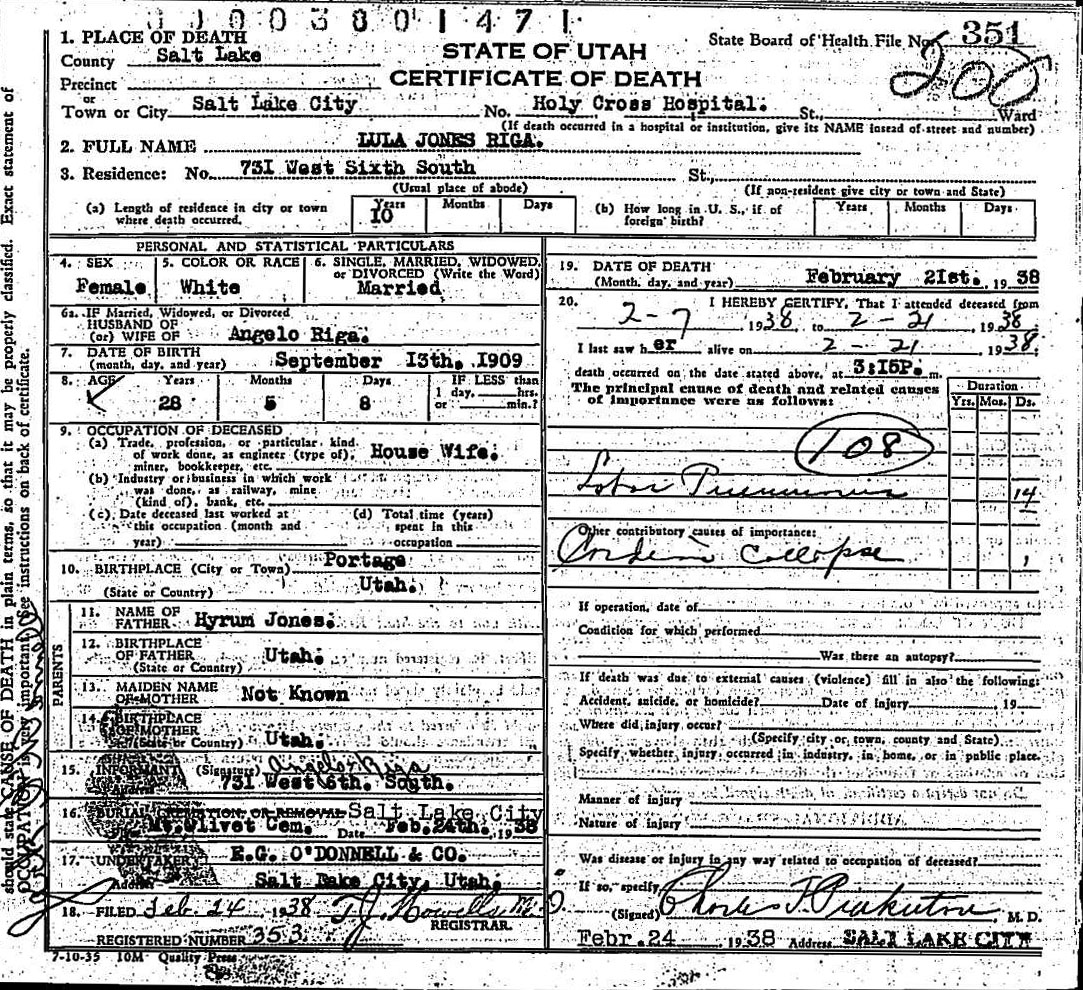 01003801471
1. PLACE OF DEATH
County Salt Lake
STATE OF UTAH
CERTIFICATE OF DEATH
State Board of Health File No. 351
200
Precinct
or
Town or City Salt Lake City No. Holy Cross Hospital. St., Ward
(If death occurred in a hospital or institution, give its NAME instead of street and number)
2. FULL NAME LULA JONES RIGA.
3. Residence: No. 731 West Sixth South St.,
(Usual place of abode) (If non-resident give city or town and State)
(a) Length of residence in city or town where death occurred. Years 10 Months Days
(b) How long in U. S., if of foreign birth? Years Months Days
PERSONAL AND STATISTICAL PARTICULARS
4. SEX Female
5. COLOR OR RACE White
6. SINGLE, MARRIED, WIDOWED, or DIVORCED (Write the Word) Married
6a. IF Married, Widowed, or Divorced
HUSBAND OF
(or) WIFE OF Angelo Riga.
7. DATE OF BIRTH
(month, day, and year) September 13th. 1909
8. AGE Years 28 Months 5 Days 8 IF LESS than 1 day, hrs. or min.?
9. OCCUPATION OF DECEASED
(a) Trade, profession, or particular kind
of work done, as engineer (type of), House Wife.
miner, bookkeeper, etc.
(b) Industry or business in which work
was done, as railway, mine
(kind of), bank, etc.
(c) Date deceased last worked at this occupation (month and year)
(d) Total time (years) spent in this occupation
10. BIRTHPLACE (City or Town) Portage
(State or Country) Utah.
PARENTS
11. NAME OF FATHER Hyrum Jones.
12. BIRTHPLACE OF FATHER Utah.
(State or Country)
13. MAIDEN NAME OF MOTHER Not Known
14. BIRTHPLACE OF MOTHER
(State or Country) Utah.
15. INFORMANT (Signature) Angelo Riga
Address 731 West 6th. South.
16. BURIAL CREMATION OR REMOVAL Salt Lake City
Mt. Olivet Cem. Date Feb. 24th. 1938
17. UNDERTAKER E.G. O'DONNELL & CO.
Address Salt Lake City, Utah.
18. FILED Feb. 24 1938 T.J. Howells M.D.
REGISTRAR.
REGISTERED NUMBER 353
7-10-35 10M Quality Press
19. DATE OF DEATH
(Month, day, and year) February 21st. 1938
20. I HEREBY CERTIFY, That I attended deceased from
2-7 1938 to 2-21 1938.
I last saw her alive on 2-21 1938.
death occurred on the date stated above, at 3:15P. m.
The principal cause of death and related causes
of importance were as follows:
Duration
Yrs. Mos. Ds.
108
Lobar Pneumonia 14
Other contributory causes of importance:
Cardiac Collapse 1
If operation, date of
Condition for which performed
Was there an autopsy?
If death was due to external causes (violence) fill in also the following:
Accident, suicide, or homicide? Date of injury 19
Where did injury occur?
(Specify city or town, county and State)
Specify whether injury occurred in industry, in home, or in public place.
Manner of injury
Nature of injury
Was disease or injury in any way related to occupation of deceased?
If so, specify
(Signed) Charles T. Pinkerton M. D.
Febr. 24 1938 Address SALT LAKE CITY
should state CAUSE OF DEATH in plain terms, so that it may be properly classified. Exact statement of
OCCUPATION is very important. (See instructions on back of certificate.